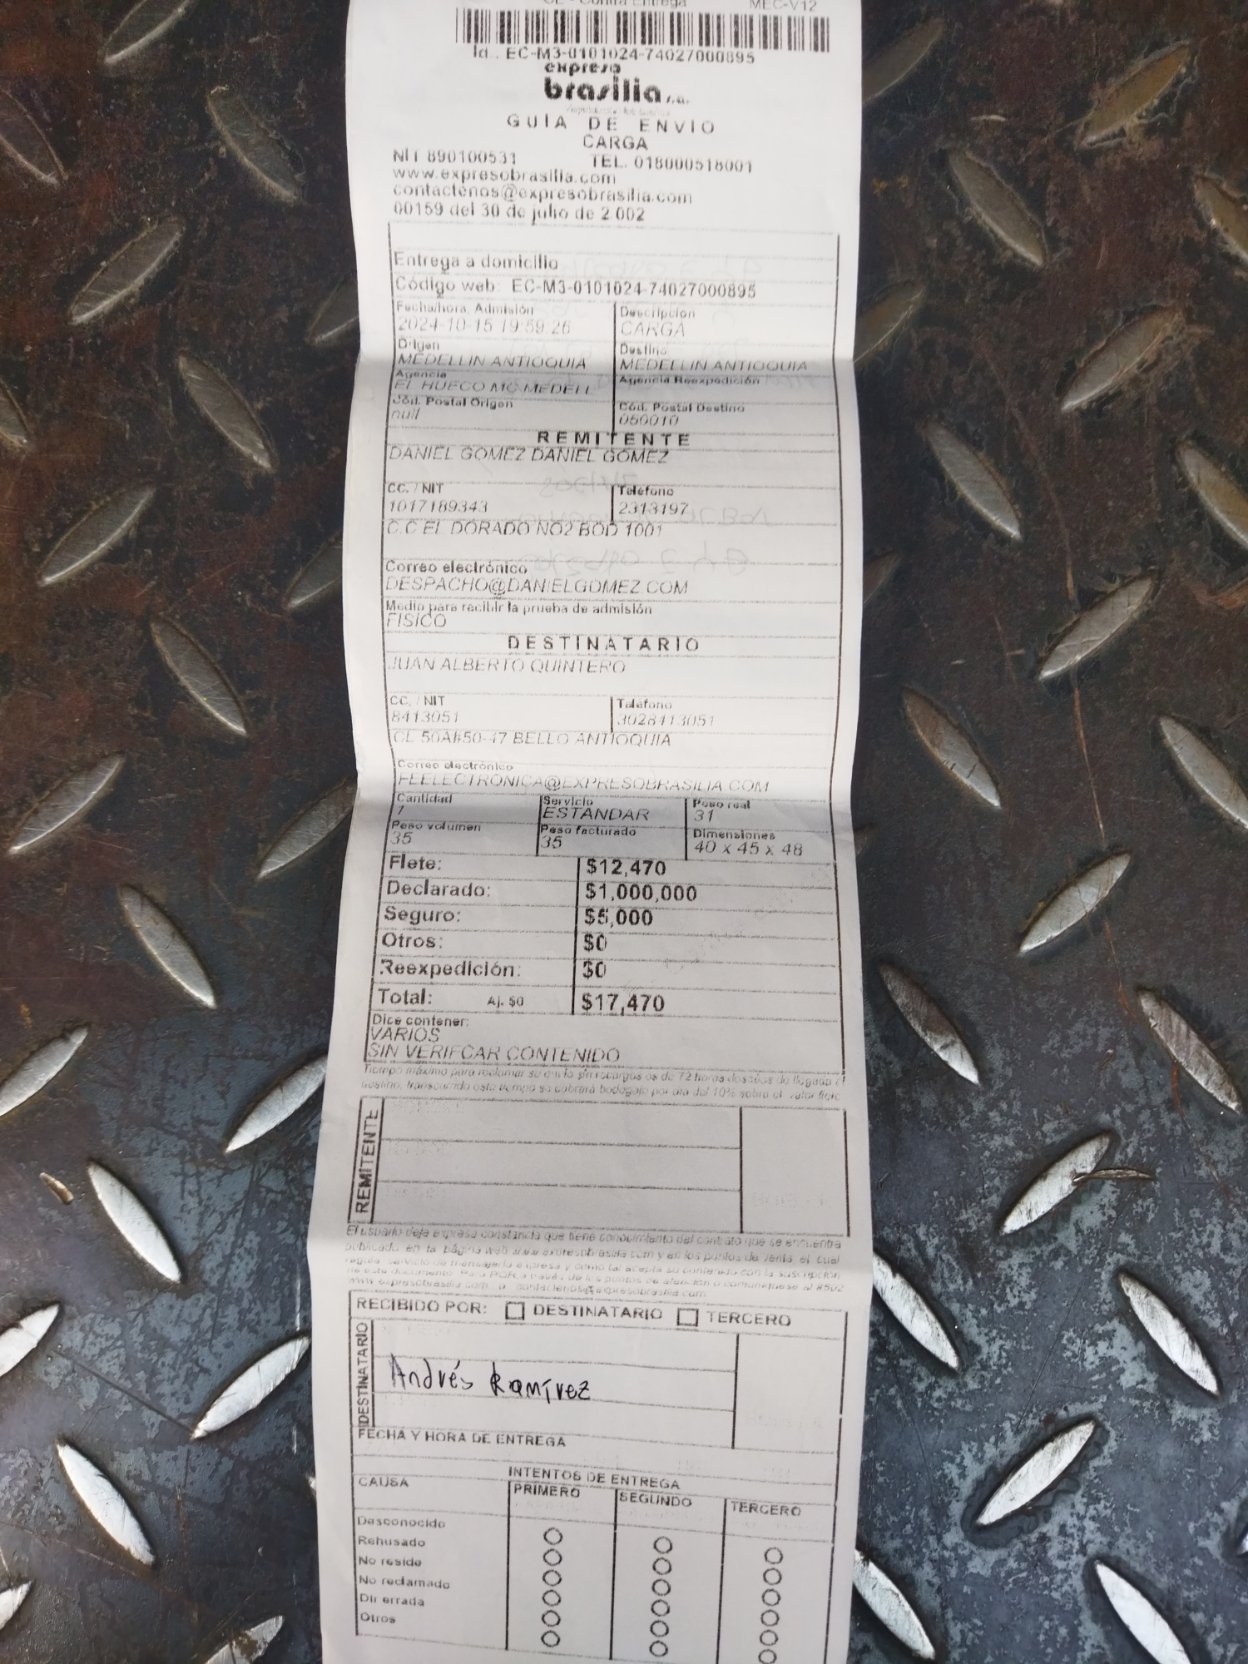 CE - Contra Entrega MEC-V12
Id.. EC-M3-0101024-74027000895
expreso
brasilia s.a.
GUIA DE ENVIO
CARGA
NIT 890100531 TEL. 018000518001
www.expresobrasilia.com
contactenos@expresobrasilia.com
00159 del 30 de julio de 2.002
Entrega a domicilio
Código web: EC-M3-0101024-74027000895
Fecha/hora. Admisión Descripcion
2024-10-15 19:59:26 CARGA
Origen Destino
MEDELLIN ANTIOQUIA MEDELLIN ANTIOQUIA
Agencia Agencia Reexpedición
EL HUECO MC MEDELL
Cód. Postal Origen Cód. Postal Destino
null 050010
REMITENTE
DANIEL GOMEZ DANIEL GOMEZ
CC. / NIT Teléfono
1017189343 2313197
C.C EL DORADO NO2 BOD 1001
Correo electrónico
DESPACHO@DANIELGOMEZ.COM
Medio para recibir la prueba de admisión
FISICO
DESTINATARIO
JUAN ALBERTO QUINTERO
CC. / NIT Teléfono
8413051 3028413051
CL 50A#50-47 BELLO ANTIOQUIA
Correo electrónico
FEELECTRONICA@EXPRESOBRASILIA.COM
Cantidad Servicio Peso real
1 ESTANDAR 31
Peso volumen Peso facturado Dimensiones
35 35 40 x 45 x 48
Flete: $12,470
Declarado: $1,000,000
Seguro: $5,000
Otros: $0
Reexpedición: $0
Total: Aj. $0 $17,470
Dice contener:
VARIOS
SIN VERIFCAR CONTENIDO
Tiempo máximo para reclamar su envio sin recargos es de 72 horas después de llegado al
destino, transcurrido este tiempo se cobrará bodegaje por día del 10% sobre el valor flete
REMITENTE
El usuario deja expresa constancia que tiene conocimiento del contrato que se encuentra
publicado en la página web www.expresobrasilia.com y en los puntos de venta, el cual
regula servicio de mensajería expresa y como tal acepta su contenido con la suscripción
de este documento. Para PQR a través de los puntos de atención o comuníquese al #502
www.expresobrasilia.com o contactenos@expresobrasilia.com
RECIBIDO POR: DESTINATARIO TERCERO
DESTINATARIO
Andrés Ramírez
FECHA Y HORA DE ENTREGA
INTENTOS DE ENTREGA
CAUSA PRIMERO SEGUNDO TERCERO
Desconocido
Rehusado
No reside
No reclamado
Dir errada
Otros